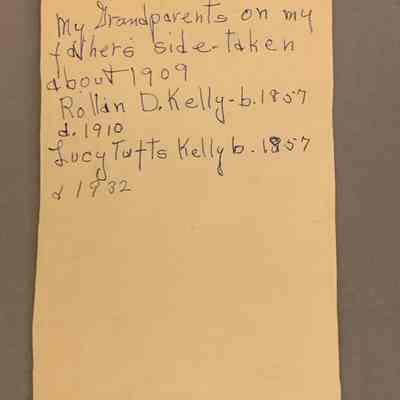 My Grandparents on my
father's side-taken
about 1909
Rollin D. Kelly-b. 1857
d. 1910
Lucy Tufts Kelly b. 1857
d 1932